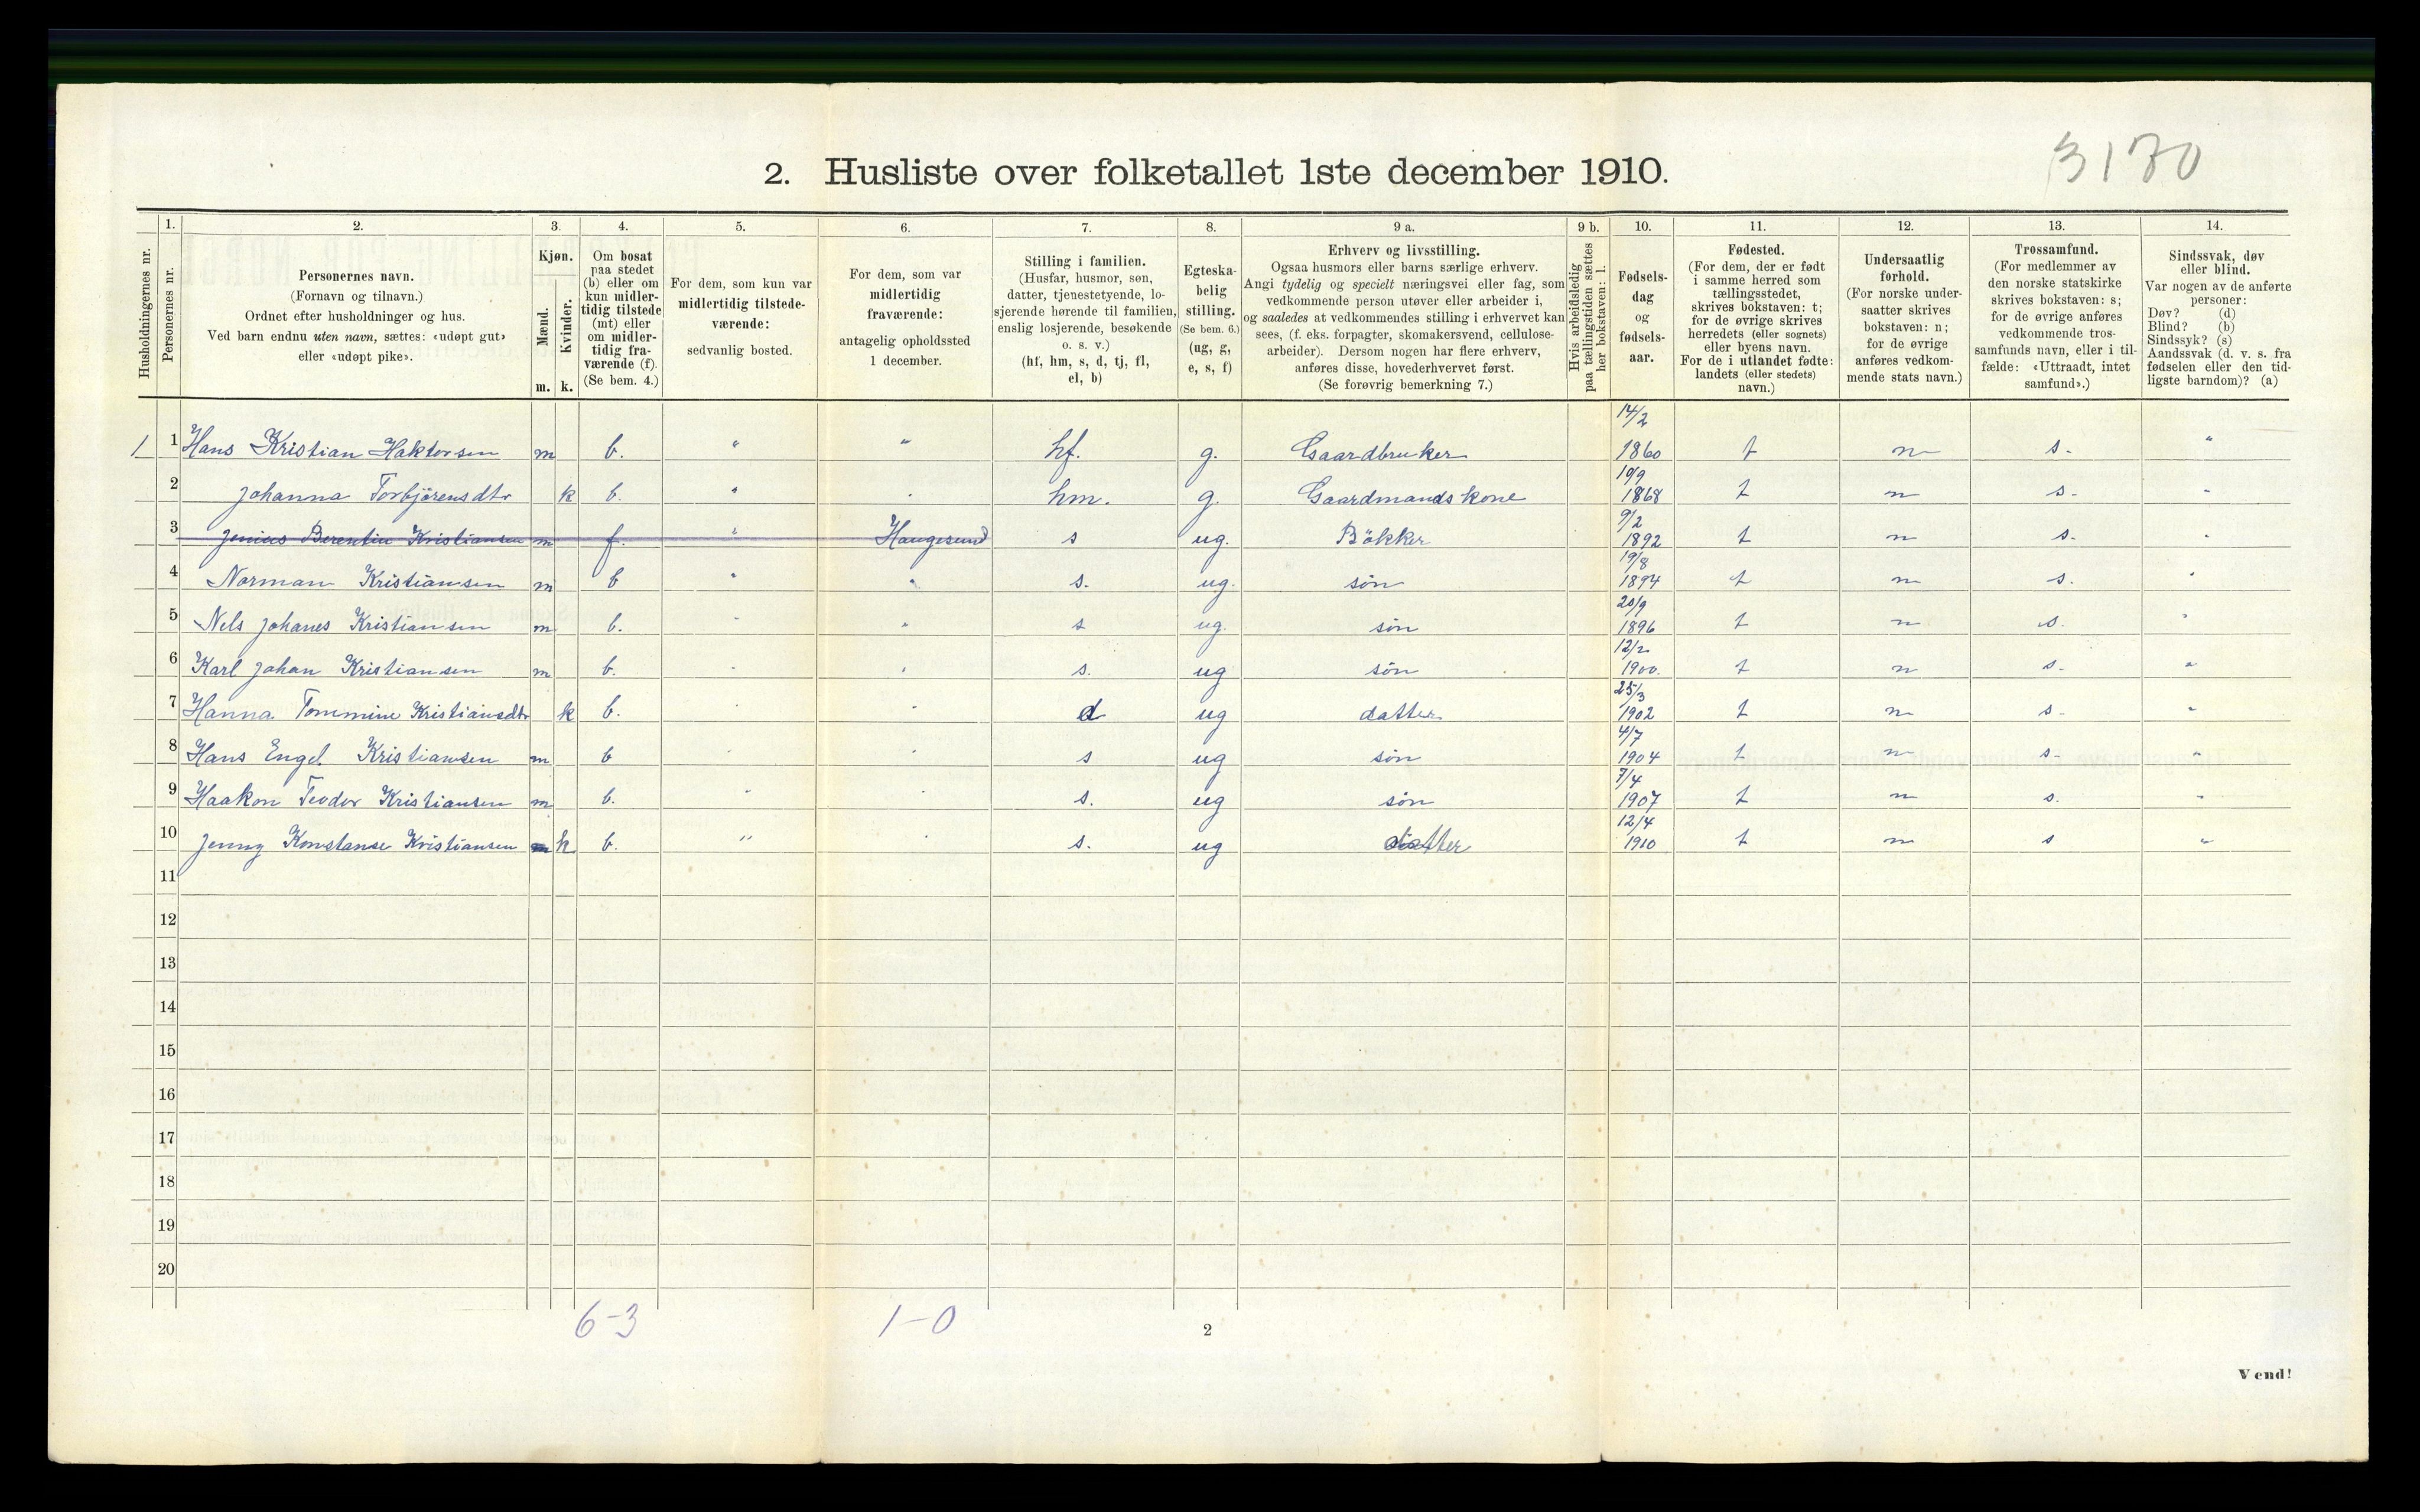 3170
2. Husliste over folketallet 1ste december 1910.
Husholdningernes nr.
1.
Personernes nr.
2.
Personernes navn.
(Fornavn og tilnavn.)
Ordnet efter husholdninger og hus.
Ved barn endnu uten navn, sættes: «udøpt gut»
eller «udøpt pike».
3.
Kjøn.
Mænd.
m.
Kvinder.
k.
4.
Om bosat
paa stedet
(b) eller om
kun midler-
tidig tilstede
(mt) eller
om midler-
tidig fra-
værende (f).
(Se bem. 4.)
5.
For dem, som kun var
midlertidig tilstede-
værende:
sedvanlig bosted.
6.
For dem, som var
midlertidig
fraværende:
antagelig opholdssted
1 december.
7.
Stilling i familien.
(Husfar, husmor, søn,
datter, tjenestetyende, lo-
sjerende hørende til familien,
enslig losjerende, besøkende
o. s. v.)
(hf, hm, s, d, tj, fl,
el, b)
8.
Egteska-
belig
stilling.
(Se bem. 6.)
(ug, g,
e, s, f)
9 a.
Erhverv og livsstilling.
Ogsaa husmors eller barns særlige erhverv.
Angi tydelig og specielt næringsvei eller fag, som
vedkommende person utøver eller arbeider i,
og saaledes at vedkommendes stilling i erhvervet kan
sees, (f. eks. forpagter, skomakersvend, cellulose-
arbeider). Dersom nogen har flere erhverv,
anføres disse, hovederhvervet først.
(Se forøvrig bemerkning 7.)
9 b.
Hvis arbeidsledig
paa tællingstiden sættes
her bokstaven: l.
10.
Fødsels-
dag
og
fødsels-
aar.
11.
Fødested.
(For dem, der er født
i samme herred som
tællingsstedet,
skrives bokstaven: t;
for de øvrige skrives
herredets (eller sognets)
eller byens navn.
For de i utlandet fødte:
landets (eller stedets)
navn.)
12.
Undersaatlig
forhold.
(For norske under-
saatter skrives
bokstaven: n;
for de øvrige
anføres vedkom-
mende stats navn.)
13.
Trossamfund.
(For medlemmer av
den norske statskirke
skrives bokstaven: s;
for de øvrige anføres
vedkommende tros-
samfunds navn, eller i til-
fælde: «Uttraadt, intet
samfund».)
14.
Sindssvak, døv
eller blind.
Var nogen av de anførte
personer:
Døv? (d)
Blind? (b)
Sindssyk? (s)
Aandssvak (d. v. s. fra
fødselen eller den tid-
ligste barndom)? (a)
1 1 Hans Kristian Haktorsen m b. " " hf. g. Gaardbruker 14/2 1860 t n s. "
2 Johanna Torbjörensdtr k b. " " hm. g. Gaardmandskone 10/9 1868 t n s. "
3 Jenius Berentin Kristiansen m f. " Haugesund s ug. Bökker 9/2 1892 t n s. "
4 Norman Kristiansen m b " " s. ug. sön 19/8 1894 t n s. "
5 Nels Johanes Kristiansen m b. " " s ug. sön 20/9 1896 t n s. "
6 Karl Johan Kristiansen m b. " " s. ug sön 12/2 1900. t n s. "
7 Hanna Tommine Kristiansdtr k b. " " d ug datter 25/3 1902 t n s. "
8 Hans Engel Kristiansen m b " " s ug sön 4/7 1904 t n s. "
9 Haakon Teodor Kristiansen m b. " " s. ug sön 7/4 1907 t n s. "
10 Jenny Konstanse Kristiansen k b. " " s. ug datter 12/4 1910 t n s "
11
12
13
14
15
16
17
18
19
20
6-3 1-0
2
Vend!